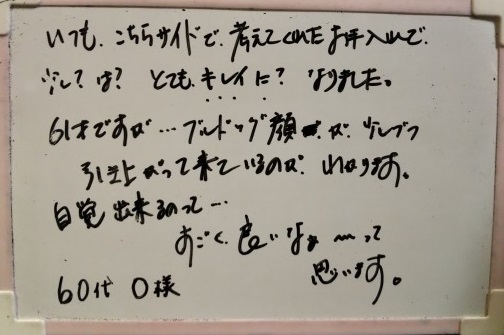 いつも、こちらサイドで、考えてくれたお手入れで、
少し?は?とても、キレイに?なりました。
61才ですが…ブルドッグ顔が、少しづつ
引き上がって来ているのが、わかります。
自覚出来るのって…
すごく、良いなぁ〜って
思います。
60代 O様